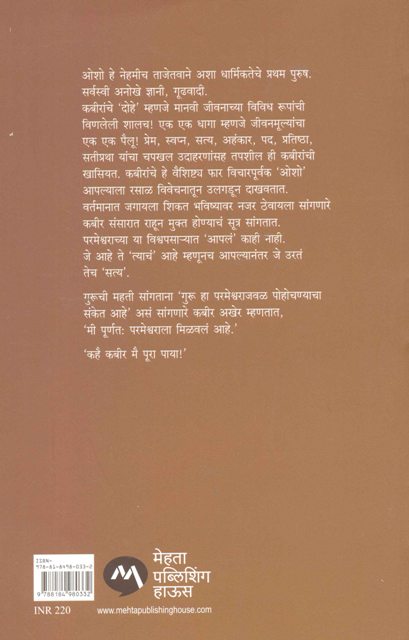 ओशो हे नेहमीच ताजेतवाने अशा धार्मिकतेचे प्रथम पुरुष.
सर्वस्वी अनोखे ज्ञानी, गूढवादी.
कबीरांचे 'दोहे' म्हणजे मानवी जीवनाच्या विविध रूपांची
विणलेली शालच! एक एक धागा म्हणजे जीवनमूल्यांचा
एक एक पैलू! प्रेम, स्वप्न, सत्य, अहंकार, पद, प्रतिष्ठा,
सतीप्रथा यांचा चपखल उदाहरणांसह तपशील ही कबीरांची
खासियत. कबीरांचे हे वैशिष्ट्य फार विचारपूर्वक 'ओशो'
आपल्याला रसाळ विवेचनातून उलगडून दाखवतात.
वर्तमानात जगायला शिकत भविष्यावर नजर ठेवायला सांगणारे
कबीर संसारात राहून मुक्त होण्याचं सूत्र सांगतात.
परमेश्वराच्या या विश्वपसाऱ्यात 'आपलं' काही नाही.
जे आहे ते 'त्याचं' आहे म्हणूनच आपल्यानंतर जे उरतं
तेच 'सत्य'.
गुरूची महती सांगताना 'गुरू हा परमेश्वराजवळ पोहोचण्याचा
संकेत आहे' असं सांगणारे कबीर अखेर म्हणतात,
'मी पूर्णत: परमेश्वराला मिळवलं आहे.'
'कहै कबीर मै पूरा पाया!'
ISBN-
978-81-8498-033-2
9788184980332
INR 220
मेहता
पब्लिशिंग
हाऊस
www.mehtapublishinghouse.com